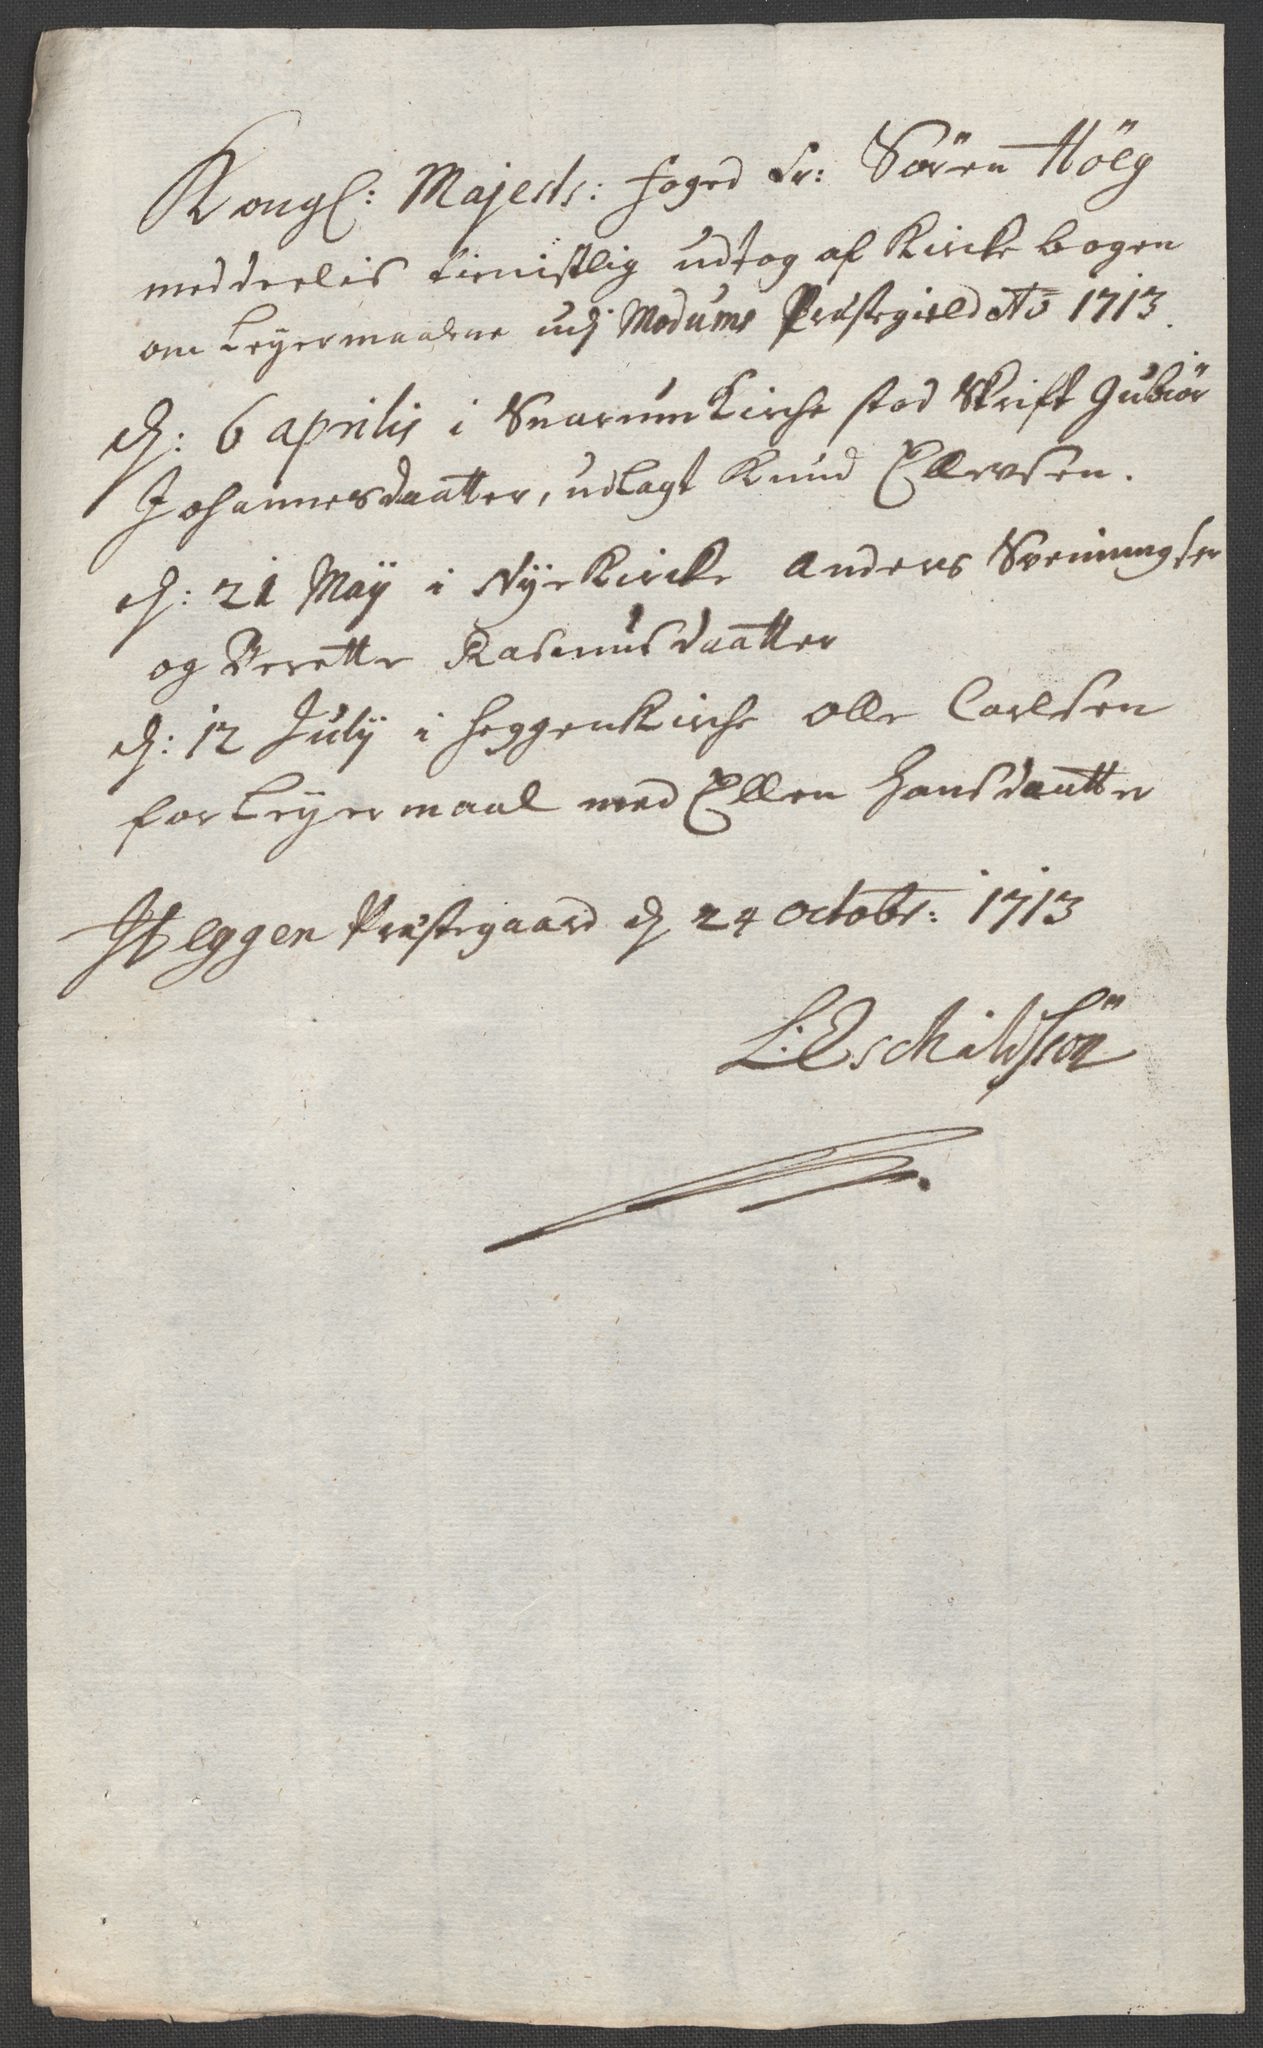 Kongl: Majests: foged Sr: Sören Höeg
meddeelis tienistlig udtog af Kircke bogen
om Leyermaalene udj Modums Præstegield Ao 1713.
d: 6 aprilis i Snarum Kirche stod Skrift Gubiör
Johannesdaatter, udlagt Knud Ellevsen.
d: 21 Maÿ i Nÿe Kircke Anders Svenningsen
og Berette Rasmusdaatter
d: 12 Julÿ i Heggen Kirche Olle Carlsen
for Leyermaal med Ellen Hansdaatter
Heggen Præstegaard d 24 octobr: 1713
L: Eschildssön